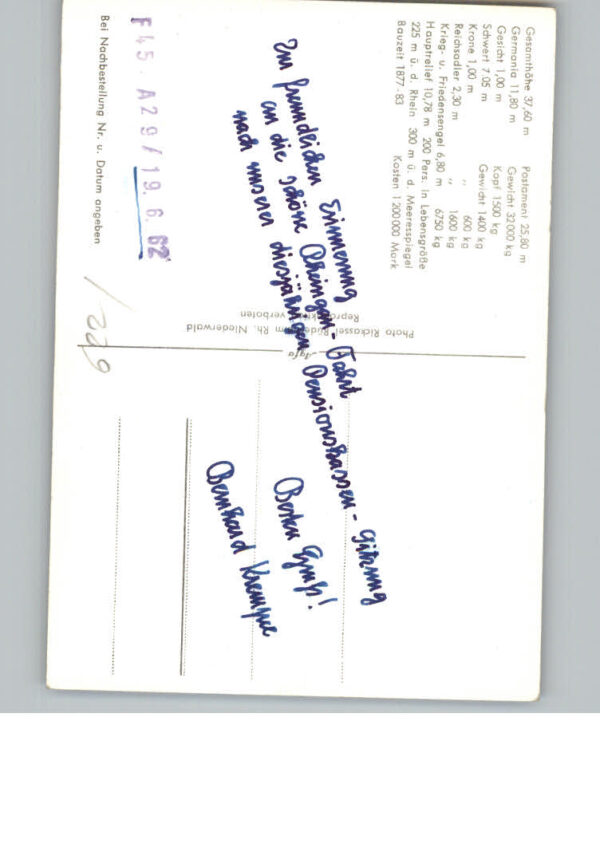 Gesamthöhe 37,60 m Postament 25,80 m
Germania 11,80 m Gewicht 32000 kg
Gesicht 1,00 m Kopf 1500 kg
Schwert 7 05 m Gewicht 1400 kg
Krone 1,00 m " 600 kg
Reichsadler 2,30 m " 1600 kg
Krieg- u. Friedensengel 6,80 m 6750 kg
Hauptrelief 10,78 m 200 Pers. in Lebensgröße
225 m ü. d. Rhein 300 m ü. d. Meeresspiegel
Bauzeit 1877-83 Kosten 1 200 000 Mark
Zur freundlichen Erinnerung
an die schöne Rheingau-Fahrt
nach unserer diesjährigen Pensionskassen-Sitzung
Besten Gruß!
Bernhard
F45. A29/19.6.62
Bei Nachbestellung Nr. u. Datum angeben
Photo Rickassel Rüdesheim Rh. Niederwald
Reproduktion verboten
Agfa